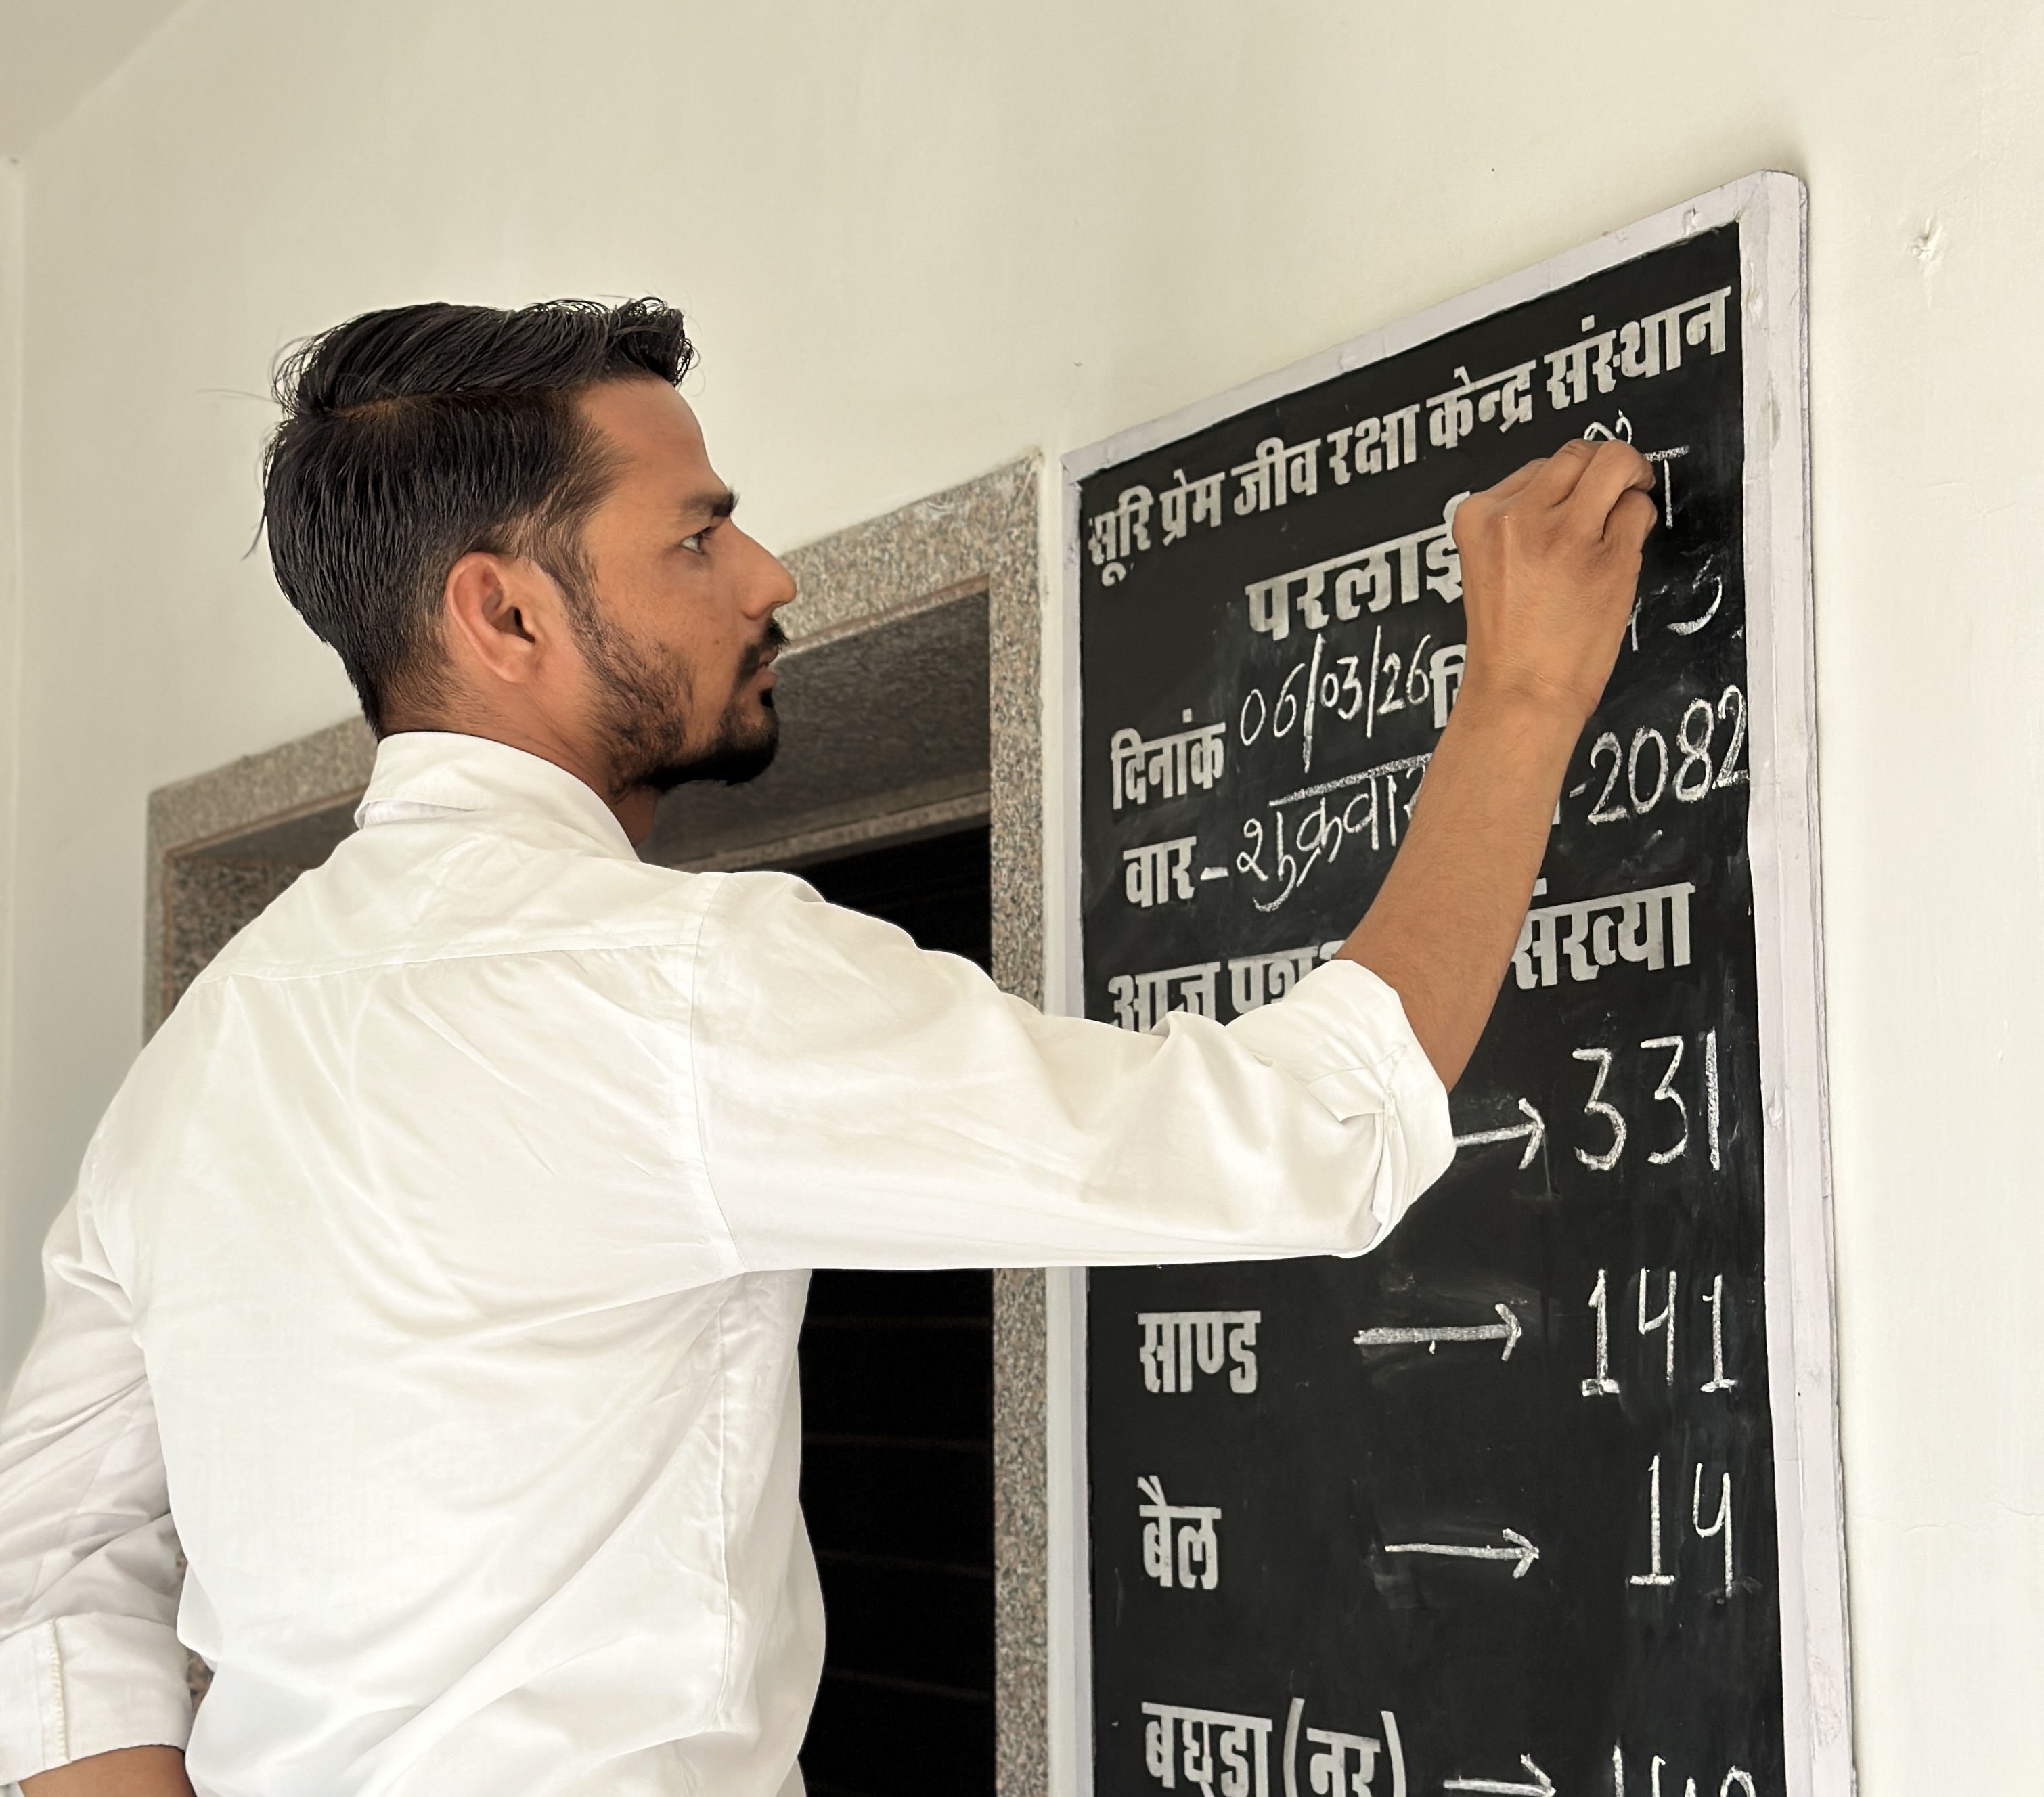 सूरि प्रेम जीव रक्षा केन्द्र संस्थान
परलाई
दिनांक 06/03/26
वार - शुक्रवार - 2082
आज संख्या
→ 331
साण्ड → 141
बैल → 14
बछडा (नर) →